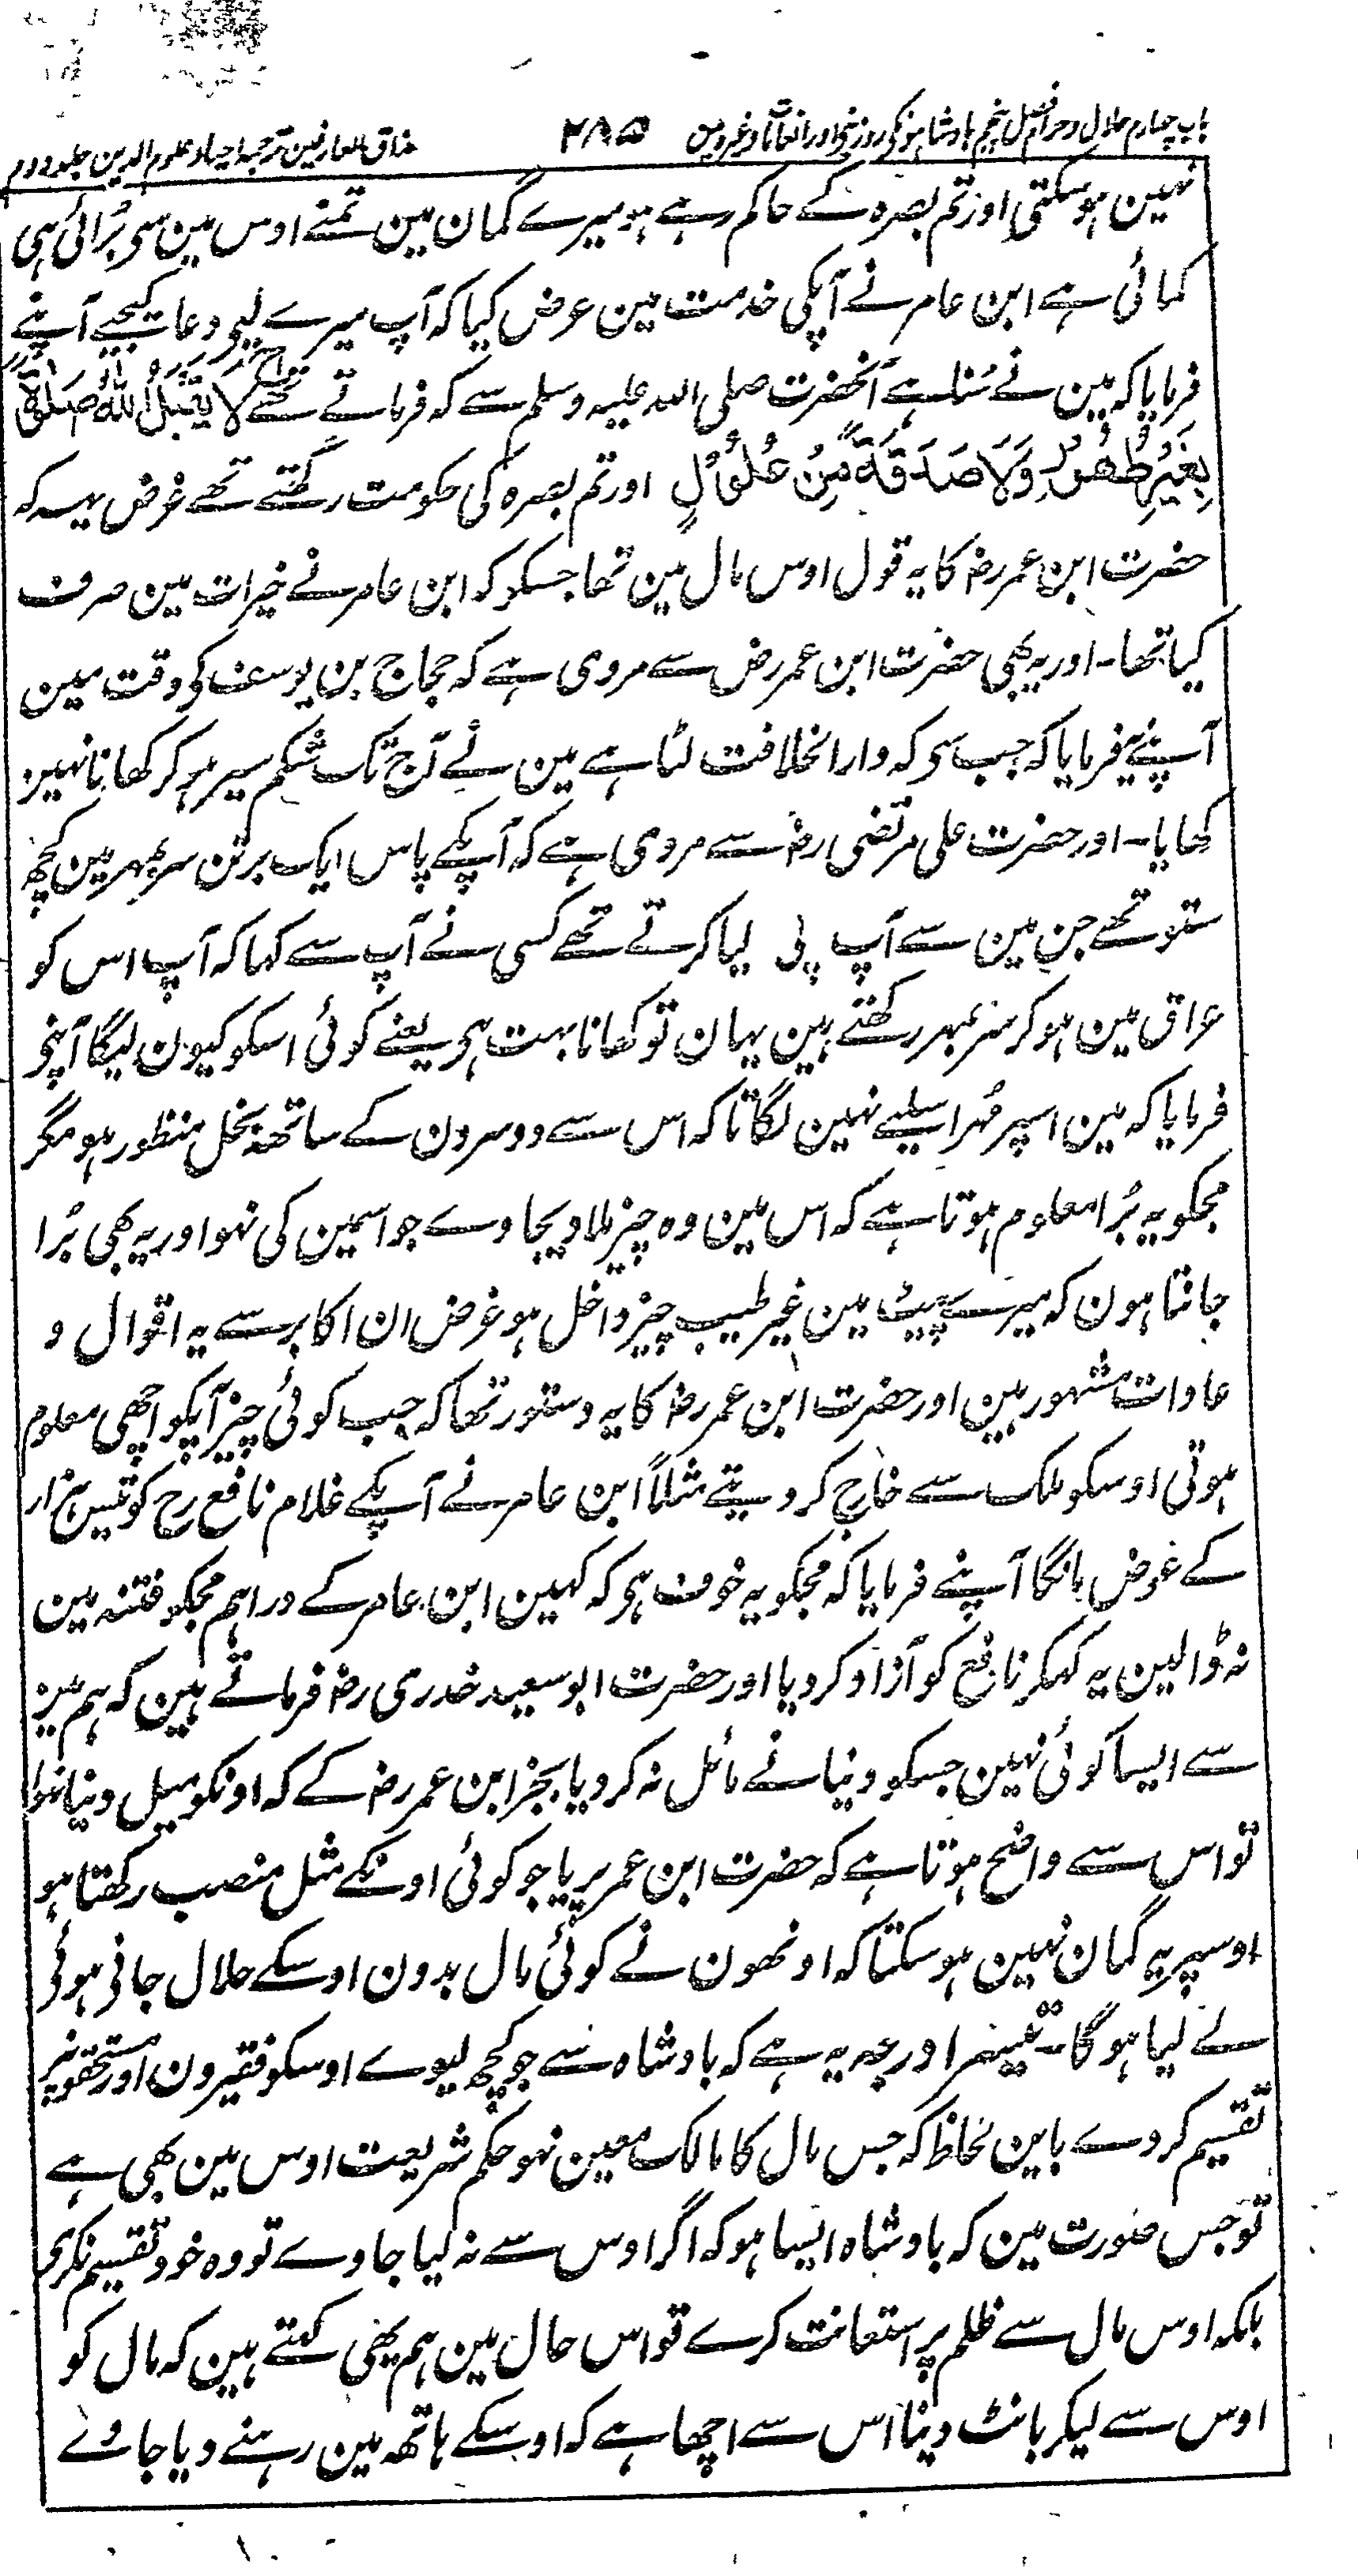 باب چہارم حلال و حرام فصل پنجم بادشاہونکی روزینے اور انعامات وغیرہ مین ۲۸۵ مذاق العارفین ترجمہ احیاء علوم الدین جلد دوم
نہین ہو سکتی اور تم بصرہ کے حاکم رہے ہو میرے گمان مین تمنے اوس مین سی بُرائی ہی
کمائی ہے ابن عامر نے آپکی خدمت مین عرض کیا کہ آپ میرے لیے دعا کیجیے آپنے
فرمایا کہ مین نے سُنا ہے آنحضرت صلی اللہ علیہ وسلم سے کہ فرماتے تھے لَا یَقْبَلُ اللّٰهُ صَلٰوةً
بِغَیْرِ طُهُوْرٍ وَلَا صَدَقَةً مِنْ غُلُوْلٍ اور تم بصرہ کی حکومت رکھتے تھے غرض یہہ کہ
حضرت ابن عمر رضہ کا یہ قول اوس مال مین تھا جسکو کہ ابن عامر نے خیرات مین صرف
کیا تھا۔ اور یہ بھی حضرت ابن عمر رض سے مروی ہے کہ حجاج بن یوسف کی وقت مین
آپنے فرمایا کہ جب سی کہ دار الخلافت لٹا ہے مین نے آج تک شکم سیر ہو کر کھانا نہین
کھایا۔ اور حضرت علی مرتضی رضہ سے مروی ہے کہ آپکے پاس ایک برتن سربمہر مین کچھ
ستو تھے جن مین سے آپ پی لیا کرتے تھے کسی نے آپ سے کہا کہ آپ اس کو
عراق مین ہو کر سربمہر رکھتے ہین یہان تو کھانا بہت ہی یعنے کوئی اسکو کیون لیگا آپنے
فرمایا کہ مین اسپر مُہر اسلیے نہین لگاتا کہ اس سے دوسرون کے ساتھ بخل منظور ہو مگر
مجکو یہ بُرا معلوم ہوتا ہے کہ اس مین وہ چیز ملا دیجاوے جو اسمین کی نہو اور یہ بھی بُرا
جانتا ہون کہ میرے پیٹ مین غیر طیب چیز داخل ہو غرض ان اکابر سے یہ اقوال و
عادات مشہور ہین اور حضرت ابن عمر رضہ کا یہ دستور تھا کہ جب کوئی چیز آپکو اچھی معلوم
ہوتی اوسکو ملک سے خارج کر دیتے مثلاً ابن عامر نے آپکے غلام نافع رح کو تیس ہزار
کے عوض مانگا آپنے فرمایا کہ مجکو یہ خوف ہی کہ کہین ابن عامر کے دراہم مجکو فتنہ مین
نہ ڈالین یہ کہکر نافع کو آزاد کر دیا اور حضرت ابو سعید خدری رضہ فرماتے ہین کہ ہم مین
سے ایسا کوئی نہین جسکو دنیا نے مائل نہ کر دیا بجز ابن عمر رضہ کے کہ اونکو میل دنیا نہوا
تو اس سے واضح ہوتا ہے کہ حضرت ابن عمر پر یا جو کوئی اونکے مثل منصب رکھتا ہو
اوسپر یہ گمان نہین ہو سکتا کہ اونھون نے کوئی مال بدون اوسکے حلال جانی ہوئی
لے لیا ہوگا۔ تیسرا درجہ یہ ہے کہ بادشاہ سے جو کچھ لیوے اوسکو فقیرون اور مستحقونپر
تقسیم کر دے باین لحاظ کہ جس مال کا مالک معین نہو حکم شریعت اوس مین بھی ہے
تو جس صورت مین کہ بادشاہ ایسا ہو کہ اگر اوس سے نہ لیا جاوے تو وہ خود تقسیم نکری
بلکہ اوس مال سے ظلم پر استعانت کرے تو اس حال مین ہم یہی کہتے ہین کہ مال کو
اوس سے لیکر بانٹ دینا اس سے اچھا ہے کہ اوسکے ہاتھ مین رہنے دیا جاوے